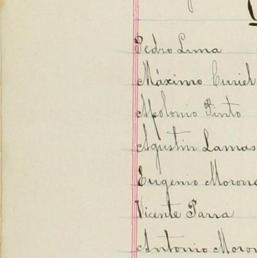 Pedro Lima
Máximo Curiel
Apolonio Pinto
Agustin Lamas
Eugenio Moron
Vicente Parra
Antonio Moron